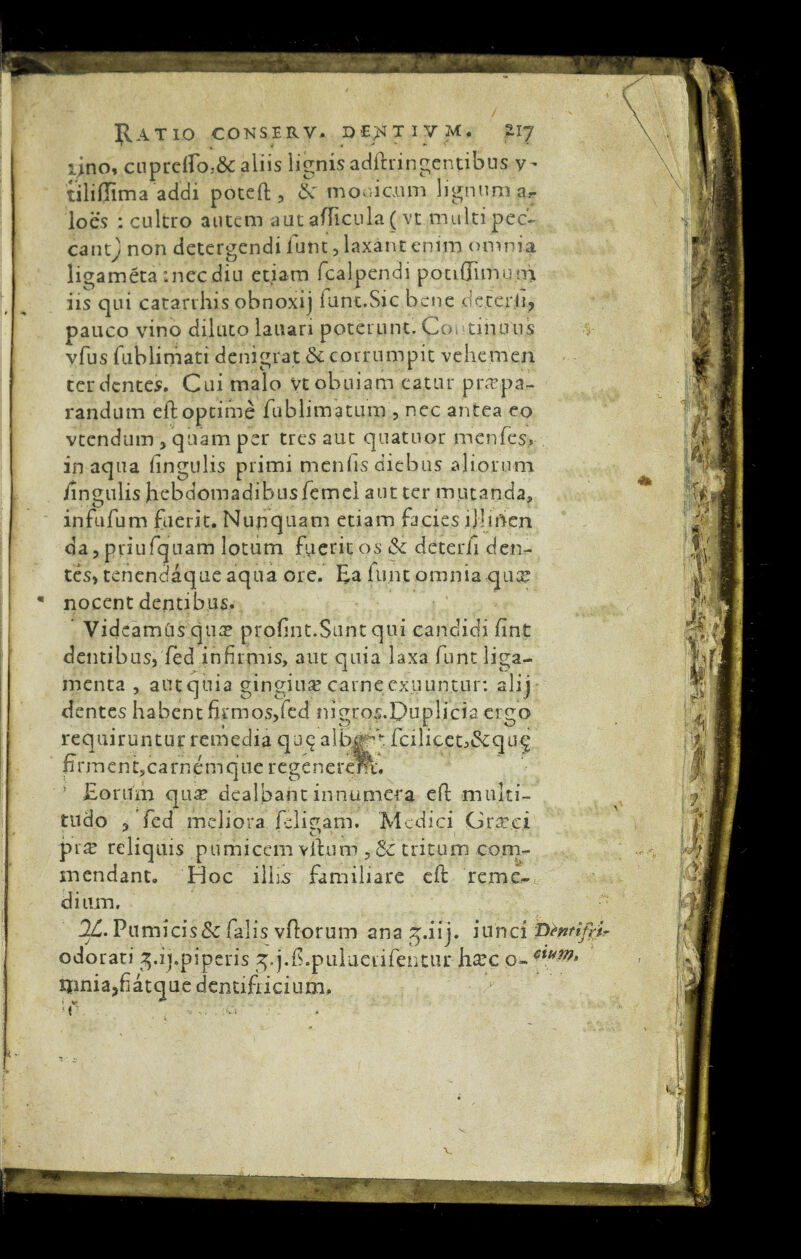 RATIO CONSERV. DENTIVM. 217
ijno, cupreſſo,& aliis lignis adſtringentibus v-
tiliſſima addi poteſt, & modicum lignum a-
loës : cultro autem aut aſſicula ( vt multi pec-
cant) non detergendi ſunt, laxant enim omnia
ligaméta : nec diu etiam ſcalpendi potiſſimum
iis qui catarrhis obnoxij ſunt.Sic bene deterſi,
pauco vino diluto lauari poterunt. Continuus
vſus ſublimati denigrat & corrumpit vehemen
ter dentes. Cui malo vt obuiam eatur præpa-
randum eſt optimè ſublimatum , nec antea eo
vtendum , quam per tres aut quatuor menſes,
in aqua ſingulis primi menſis diebus aliorum
ſingulis hebdomadibus ſemel aut ter mutanda,
infuſum fuerit. Nunquam etiam facies illinen
da, priuſquam lotum fuerit os & deterſi den-
tes, tenendáque aqua ore. Ea ſunt omnia quæ
nocent dentibus.
Videamus quæ proſint.Sunt qui candidi ſint
dentibus, ſed infirmis, aut quia laxa ſunt liga-
menta , aut quia gingiuæ carne exuuntur: alij
dentes habent firmos,ſed nigros.Duplicia ergo
requiruntur remedia quę ſcilicet,& quę
firment,carnémque regenerent.
Eorum quæ dealbant innumera eſt multi-
tudo , ſed meliora ſeligam. Medici Græci
præ reliquis pumicem vſtum , & tritum com-
mendant. Hoc illis familiare eſt reme-
dium.
℞. Pumicis & ſalis vſtorum ana ʒ.iij. iunci Dentifri-
odorati ʒ.ij.piperis ʒ.j.ß.puluerifentur hæc o- cium.
mnia,fiátque dentifricium.